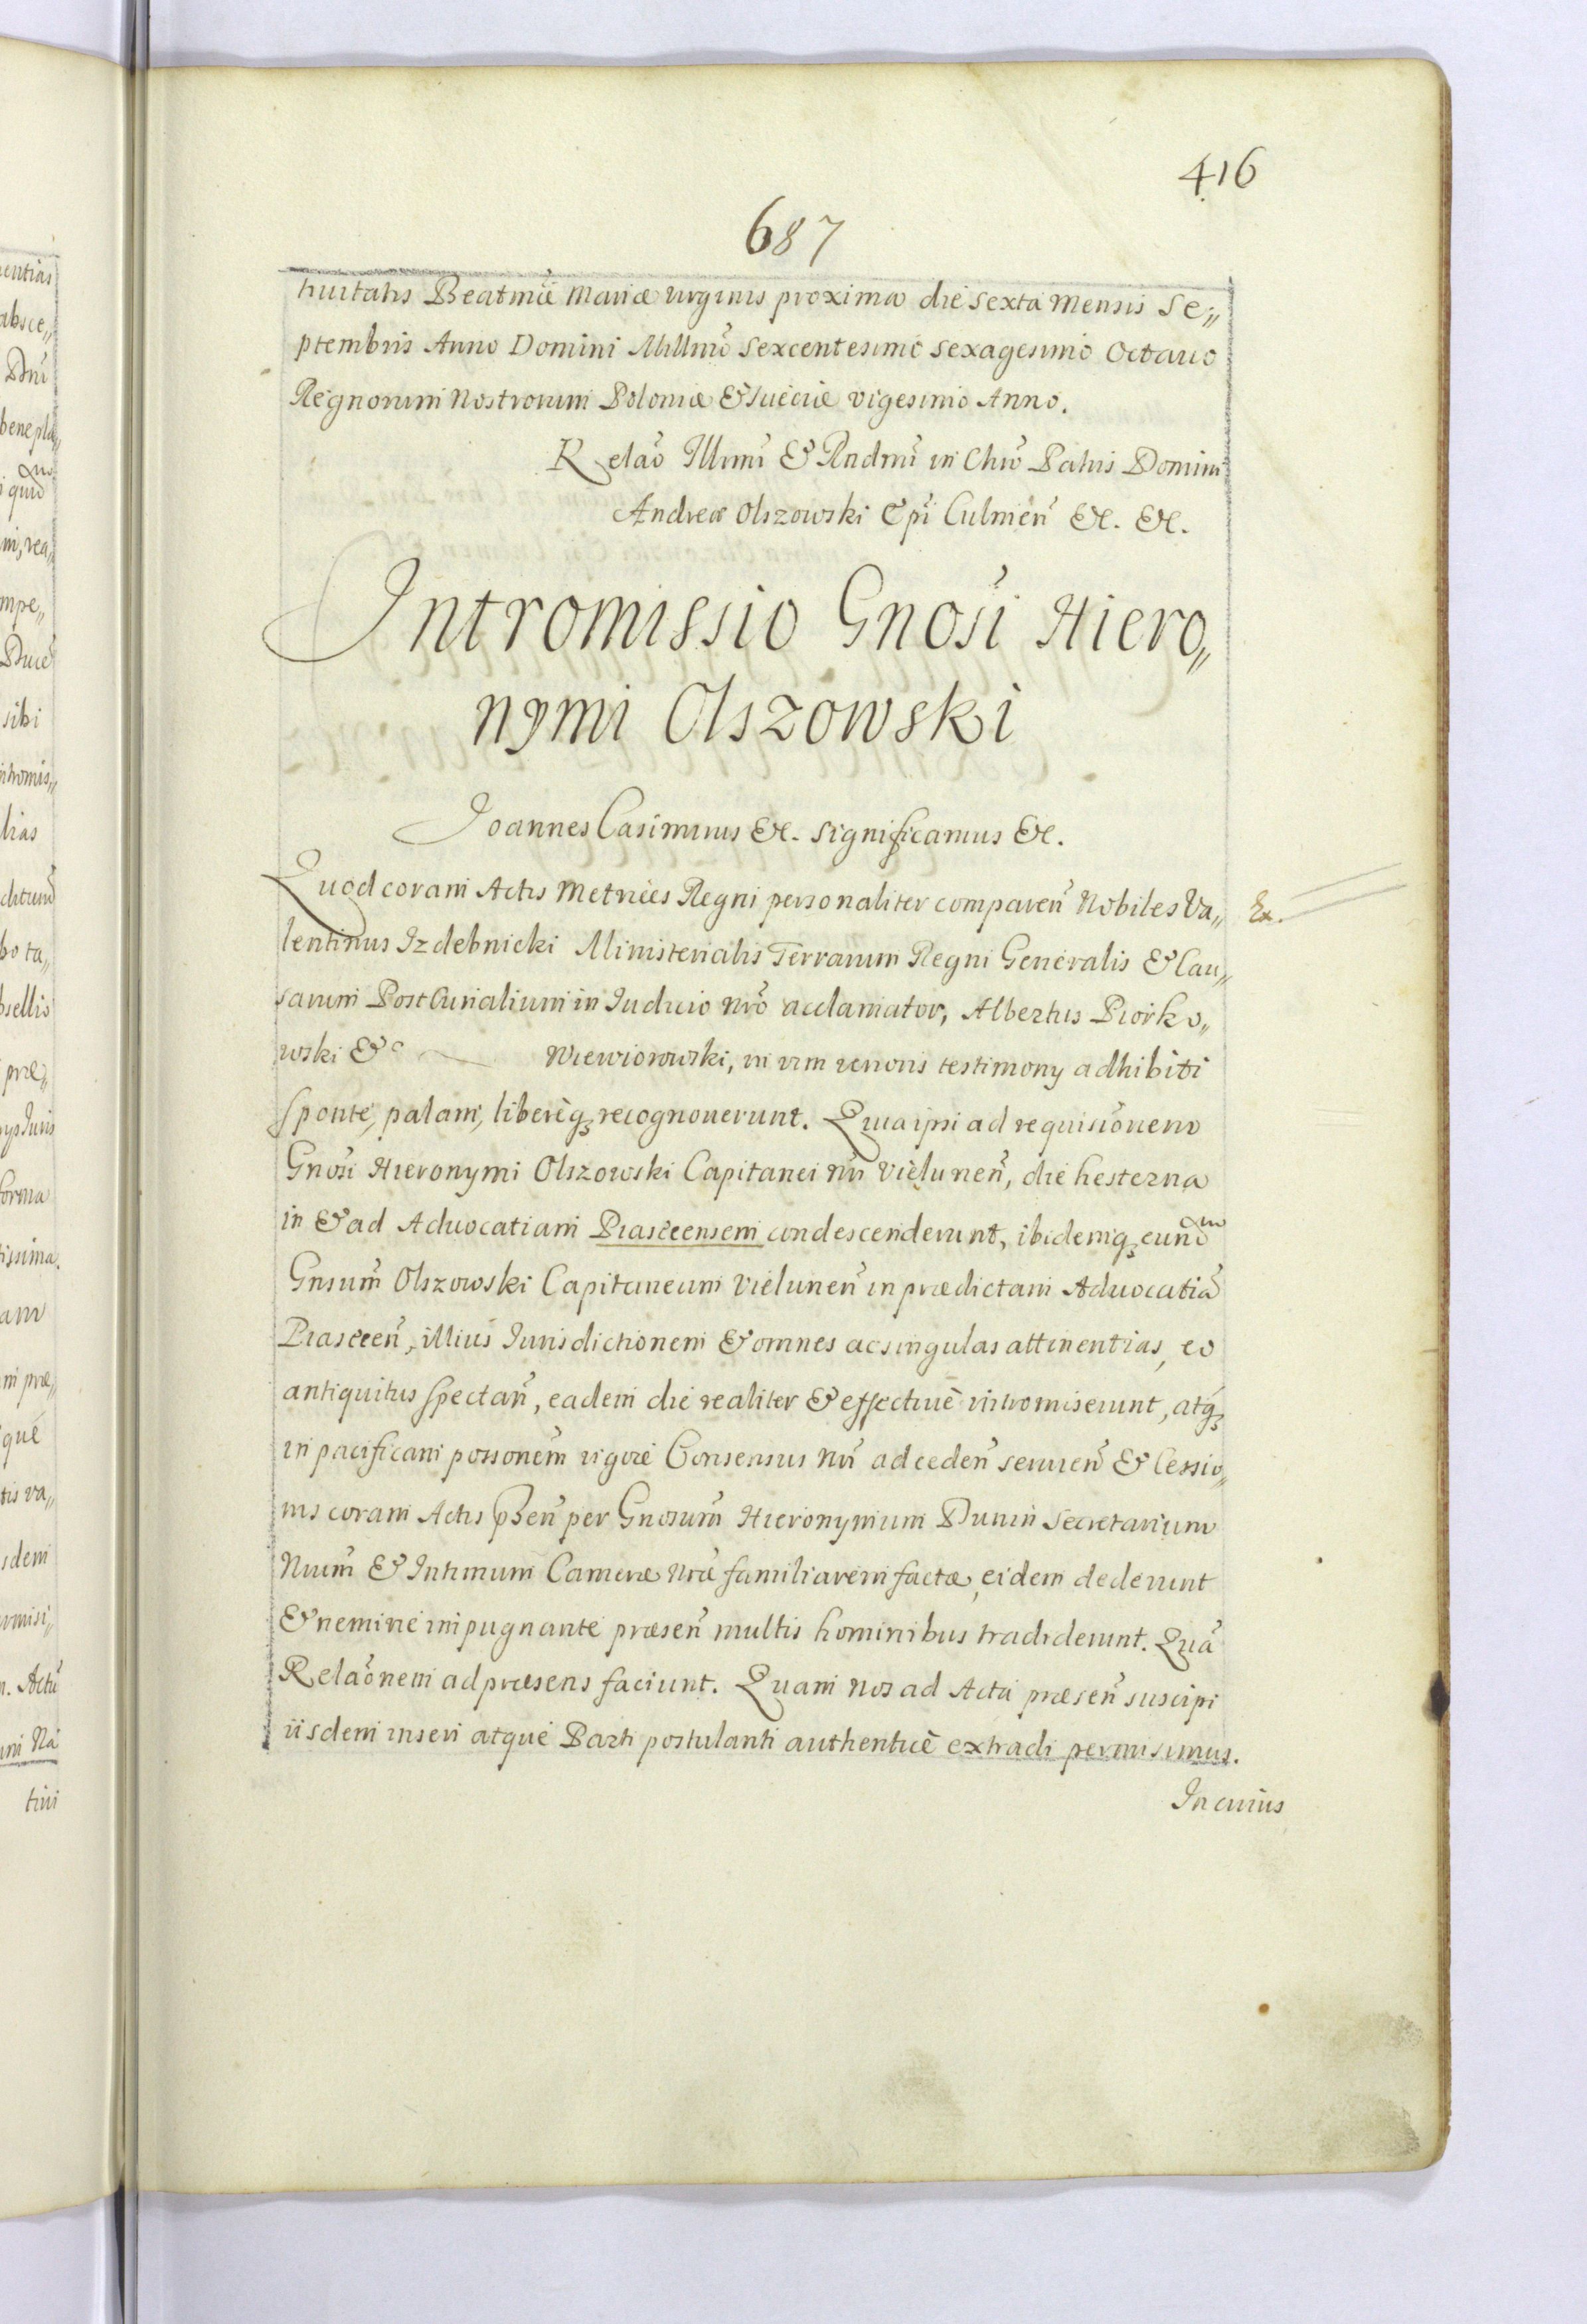 416
687
tivitatis Beatmæ Mariæ Virginis proxima die sexta Mensis Se„
ptembris Anno Domini Millmō Sexcentesimo Sexagesimo Octavo
Regnorum Nostrorum Poloniæ & Sueciæ vigesimo Anno.
Relaō Illmi & Rndmi in Chrō Patris Domini
Andreæ Olszowski Epi Culmen̄ &c. &c.
Intromissio Gnosi Hiero„
nymi Olszowski
Joannes Casimirus &c. Significamus &c.
Quod coram Actis Metrices Regni personaliter comparen̄ Nobiles Va„
Ex.
lentinus Izdebnicki Ministerialis Terrarum Regni Generalis & Cau„
sarum PostCurialium in Iudicio Nrō acclamator, Albertus Piorko„
wski &c Wiewiorowski, in vim verioris testimony adhibiti
sponte, palam, libereq̧ recognoverunt. Quia ipsi ad requisiōnem
Gnosi Hieronymi Olszowski Capitanei Nri Vielunen̄, die hesterna
in & ad Advocatiam Piasecensem condescenderunt, ibidemq̧ eundem
Gnsum̄ Olszowski Capitaneum Vielunen̄ in prædictam Advocatiā
Piasecen̄, illius Iurisdictionem & omnes ac singulas attinentias, eo
antiquitus spectan̄, eadem die realiter & effective intromiserunt, atq̧
in pacificam possonem̄ vigore Consensus Nri ad ceden̄ servien̄ & Cessio„
nis coram Actis p̄sen̄ per Gnosum̄ Hieronymum Dunin Secretarium
Nrum̄ & Intimum Cameræ Nræ familiarem factæ, eidem dederunt
& nemine impugnante præsen̄ multis hominibus tradiderunt. Quā
Relaōnem ad præsens faciunt. Quam Nos ad Acta præsen̄ suscipi
iisdem inseri atque Parti postulanti authentice extradi permisimus.
In cuius